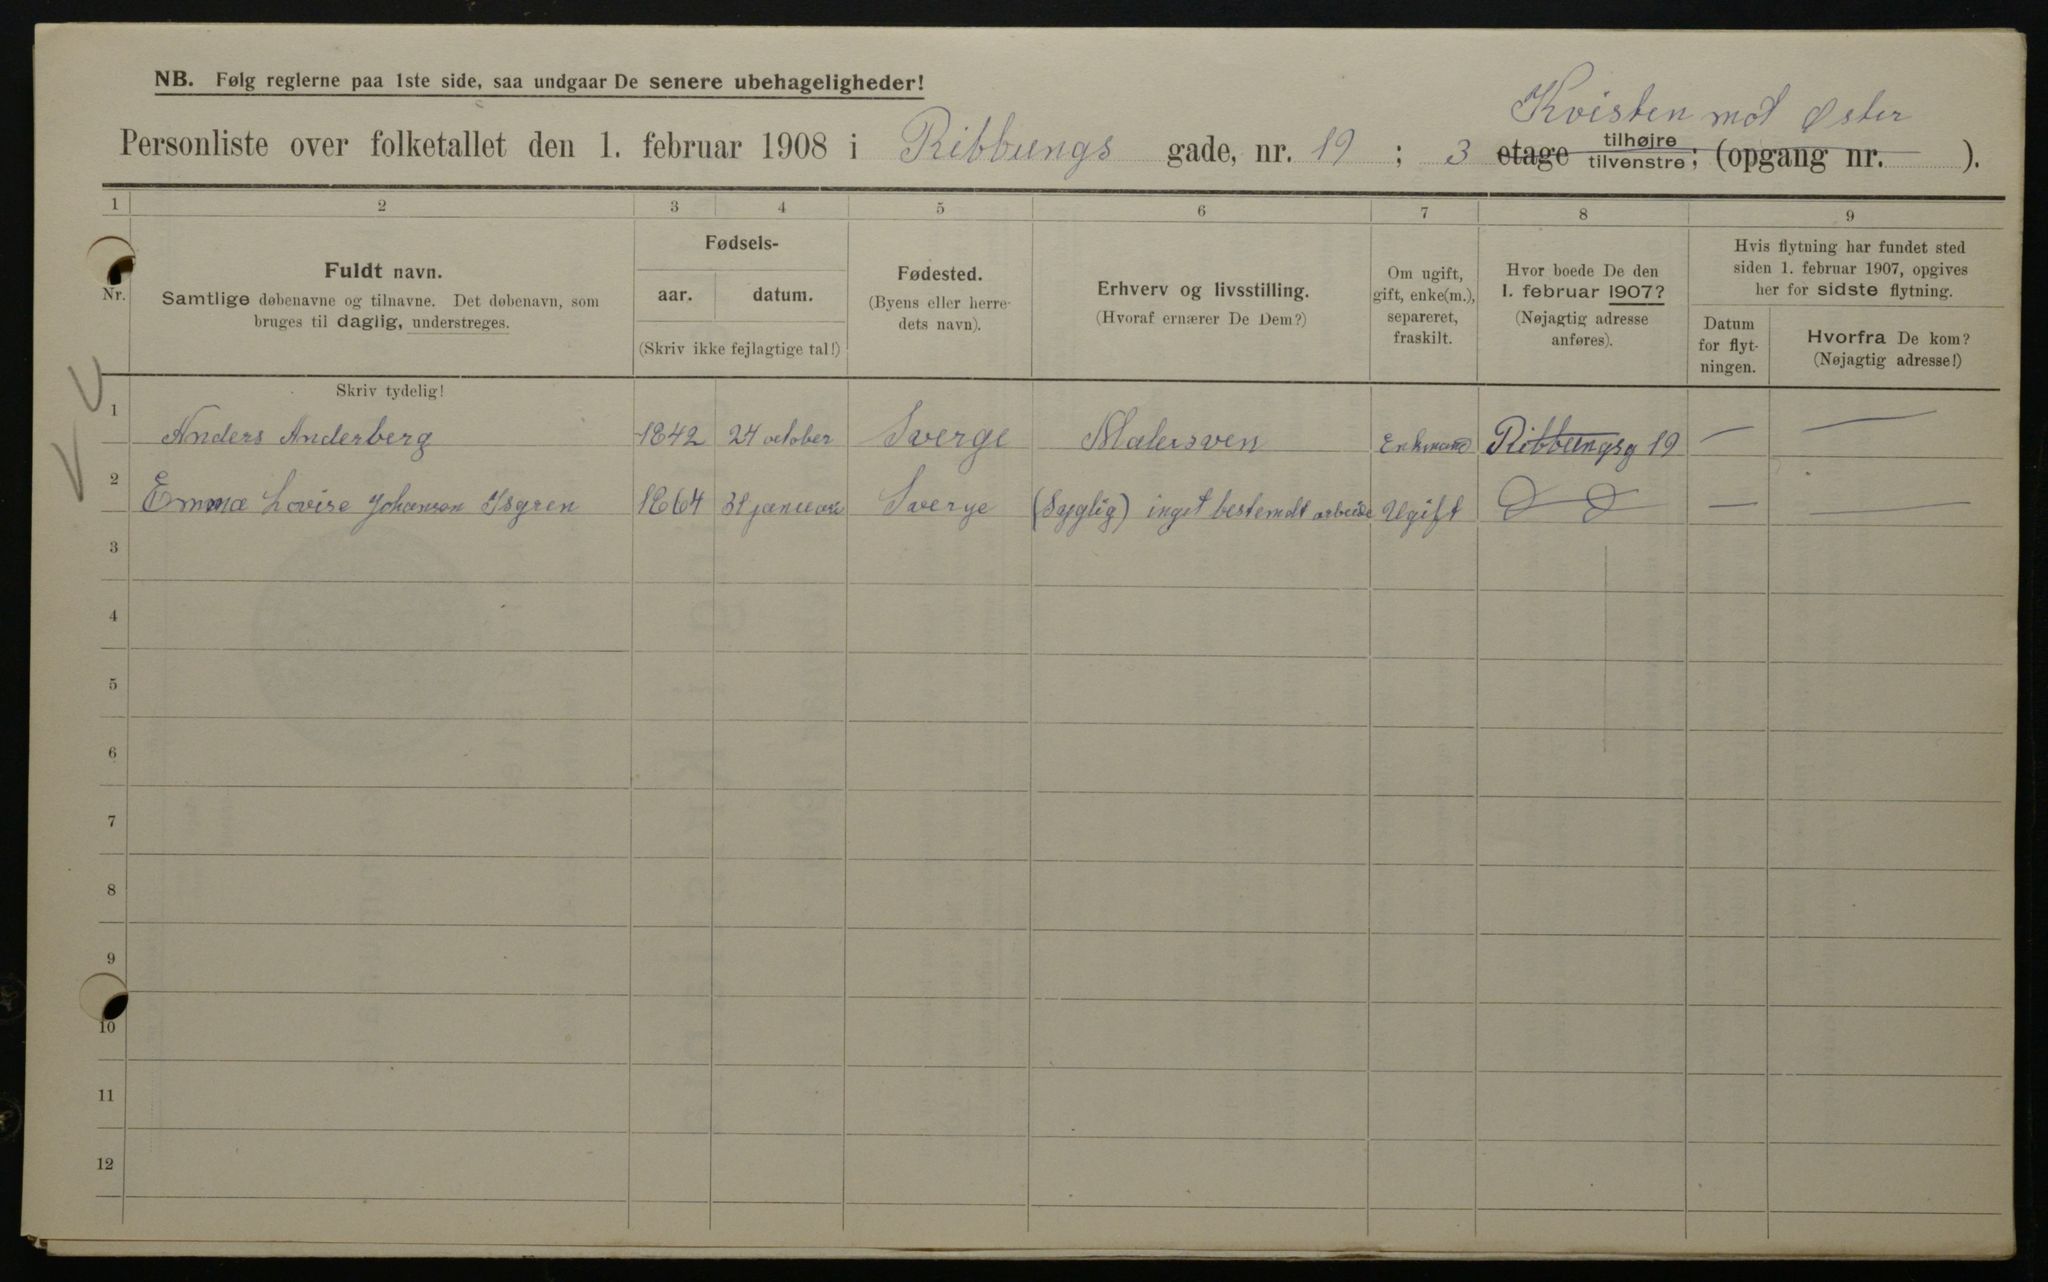 NB. Følg reglerne paa 1ste side, saa undgaar De senere ubehageligheder!
Kvisten mot Øster
Personliste over folketallet den 1. februar 1908 i Ribbungs gade, nr. 19 ; 3 etage tilhøjre tilvenstre; (opgang nr. ).
1 2 3 4 5 6 7 8 9
Nr.
Fuldt navn.
Samtlige døbenavne og tilnavne. Det døbenavn, som
bruges til daglig, understreges.
Skriv tydelig!
Fødsels-
aar. datum.
(Skriv ikke fejlagtige tal!)
Fødested.
(Byens eller herre-
dets navn).
Erhverv og livsstilling.
(Hvoraf ernærer De Dem?)
Om ugift,
gift, enke(m.),
separeret,
fraskilt.
Hvor boede De den
1. februar 1907?
(Nøjagtig adresse
anføres).
Hvis flytning har fundet sted
siden 1. februar 1907, opgives
her for sidste flytning.
Datum
for flyt-
ningen.
Hvorfra De kom?
(Nøjagtig adresse!)
1 Anders Anderberg 1842 24 october Sverge Malersven Enkemand Ribbungsg 19 — —
2 Emma Lovise Johanson Isgren 1864 31 januar Sverge (Syglig) inget bestemdt arbeide Ugift — —
3
4
5
6
7
8
9
10
11
12